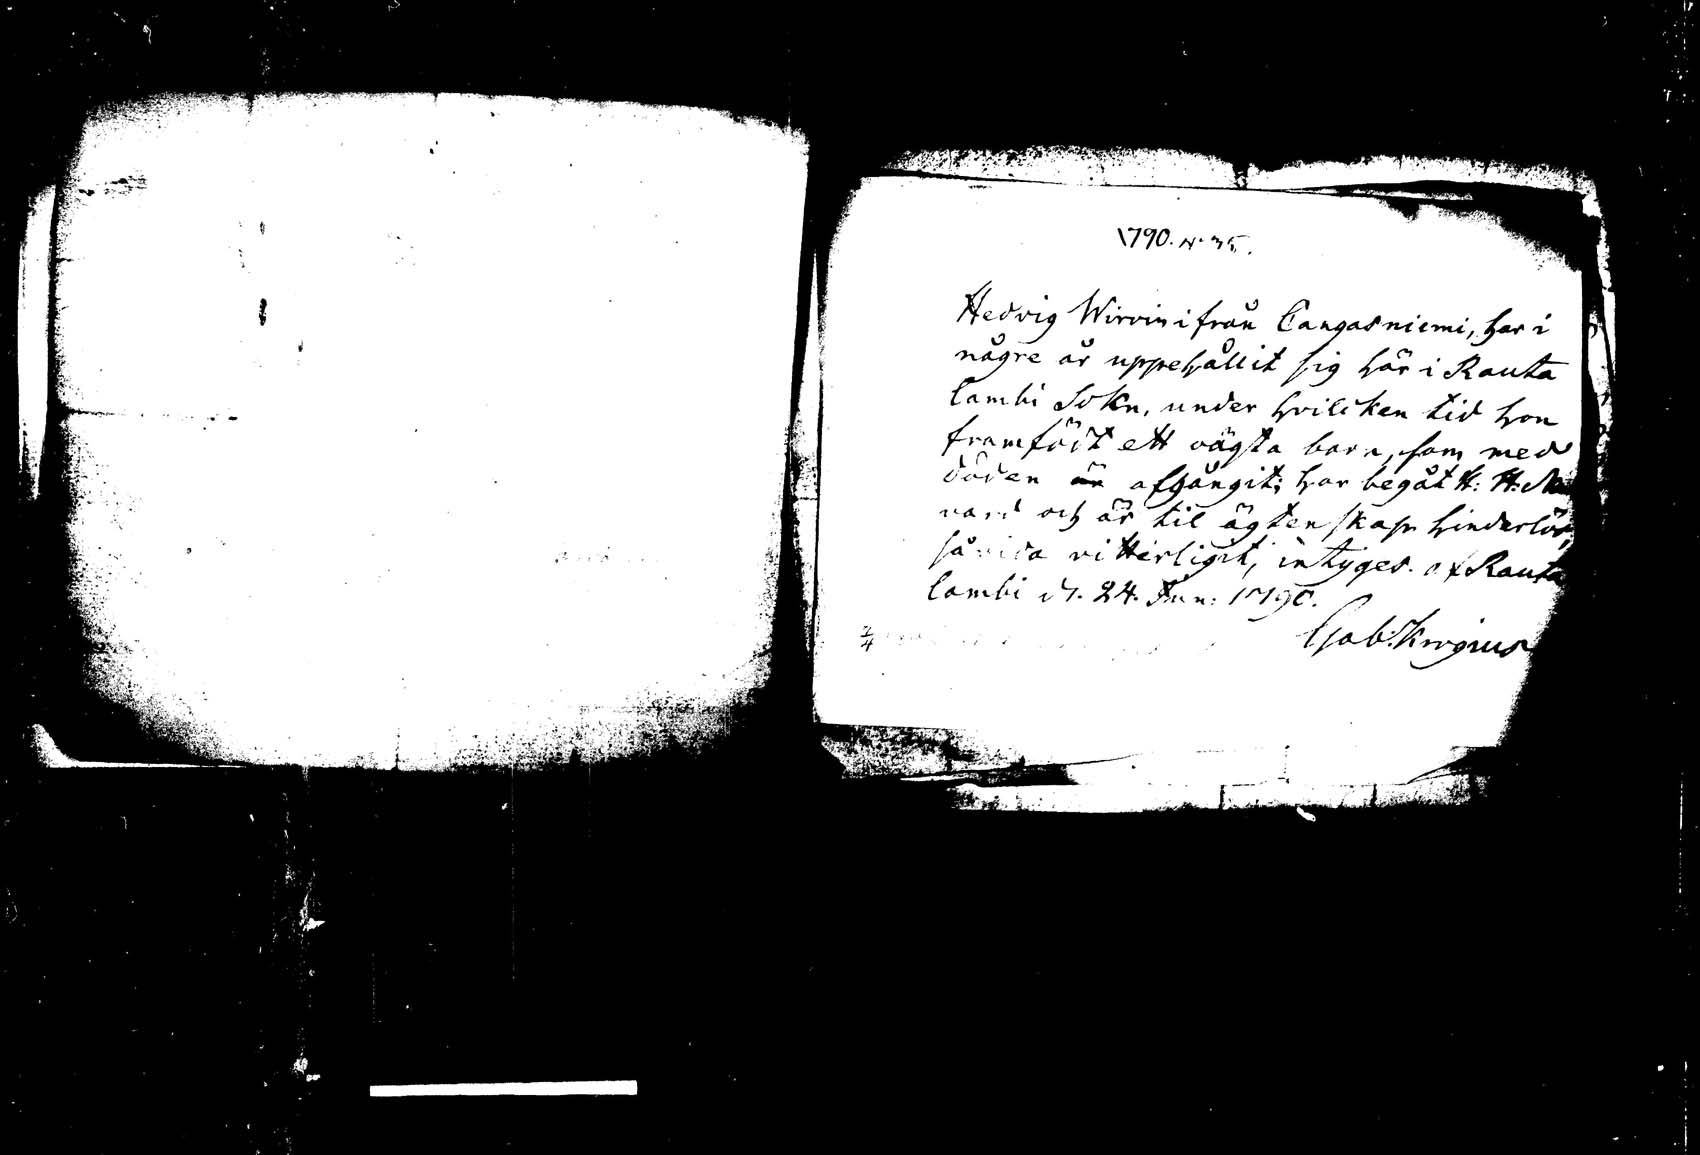 1790. N. 35.
Hedvig Wirvin ifrån Cangasniemi, har i
någre år uppehållit sig här i Rauta
lambi Sokn, under hvilcken tid hon
framfödt ett oägta barn, som med
döden är afgångit; har begåt H: H: 
vard och är til ägtenskap hinderlös,
så vida vitterligit, intyges. af Rauta
lambi d. 24. Jun: 1790.
Gab: Krogius